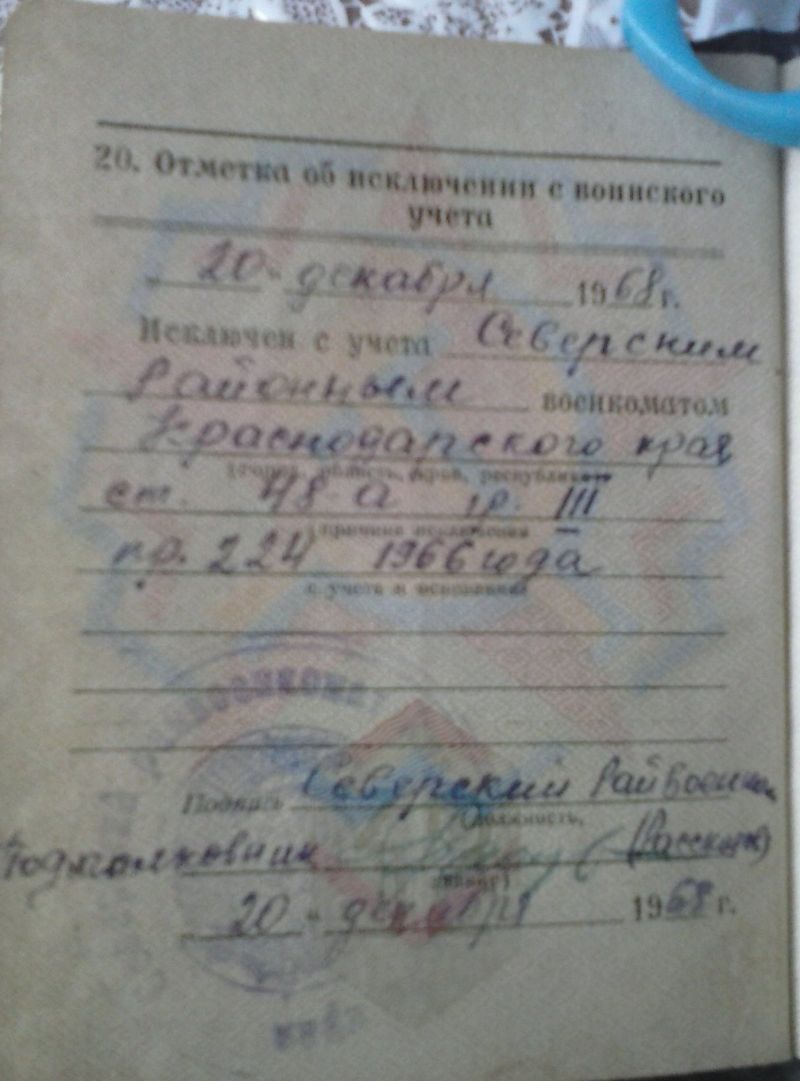 20. Отметка об исключении с воинского
учета
„ 20 " декабря 1968 г.
Исключен с учета Северским
Районным военкоматом
Краснодарского края
(город, область, край, республика)
ст. 48-а гр. III
(причина исключения
пр. 224 1966 года
с учета и основание)
Подпись Северский Райвоенком
(должность,
Подполковник
звание)
20 " декабря 1968 г.